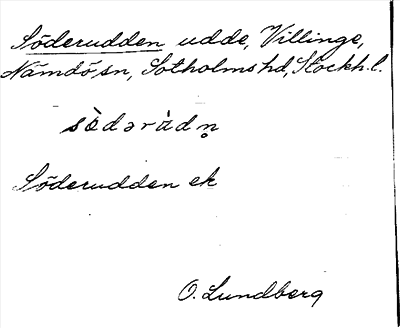 Söderudden udde, Villinge,
Nämdö sn, Sotholms hd, Stockh. l.
sö̀dərùdn̥
Söderudden ek
O. Lundberg